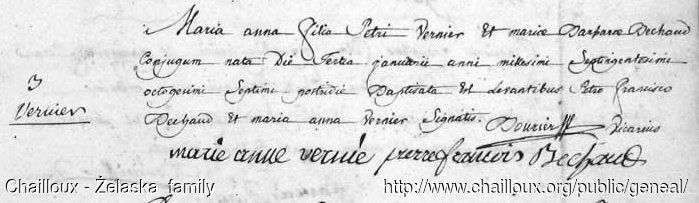 Maria anna filia Petri Vernier et mariæ Barbaræ Bechaud
Conjugum nata Die Tertia januarii anni millesimi Septingentesimi
3
octogesimi Septimi postridie Baptisata est Levantibus Petro francisco
Vernier
Bechaud et maria anna Vernier Signatis. Vicarius
marie anne vernié pierre francois Bechaud
Chailloux - Żelaska family
http://www.chailloux.org/public/geneal/